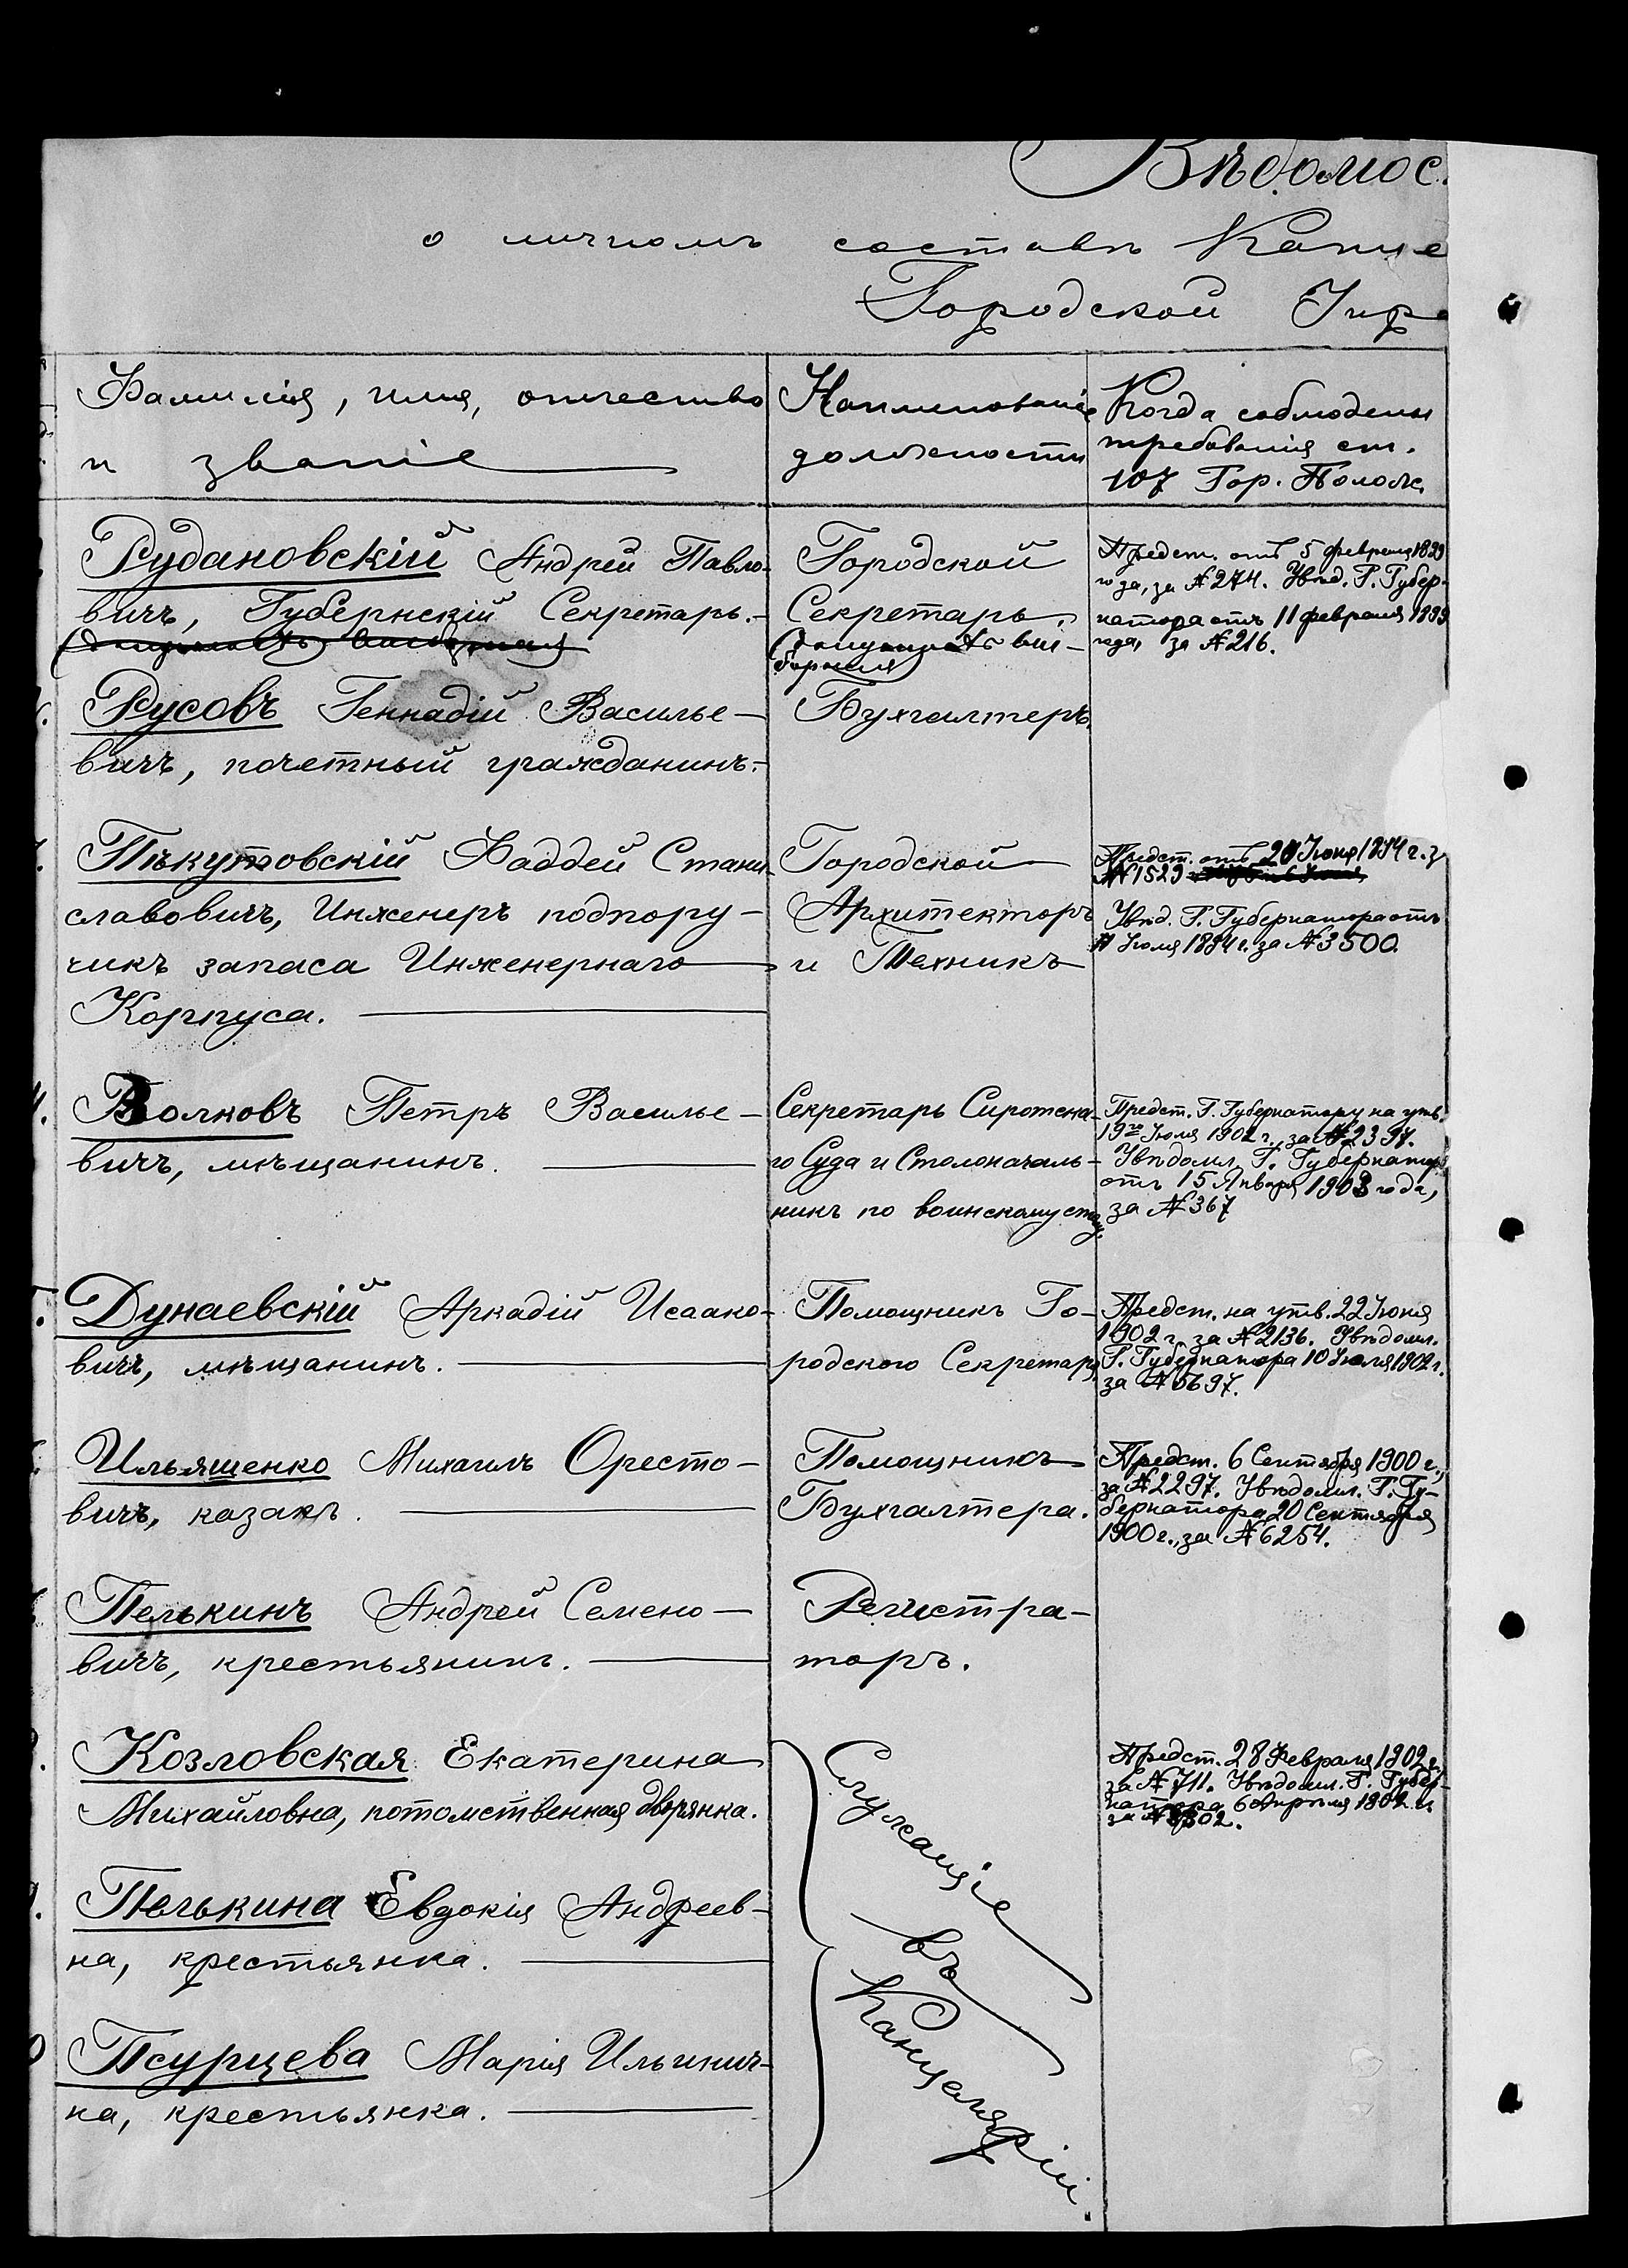 Вѣдомос
о личномъ составѣ Канце
Городской Упр
Фамилія, имя, отчество
и званіе
Наименованіе
должности
Когда соблюдены
требованія ст.
107 Гор. Полож.
Рудановскій Андрей Павло-
вичъ, Губернскій Секретарь.-
Городской
Секретарь.
Предст. отъ 5 февраля 1899
го за, за № 274. Увѣд. Г. Губер-
натора отъ 11 февраля 1899
года, за № 216.
Русовъ Геннадій Василье-
вичъ, почетный гражданинъ.-
Бухгалтеръ.
Пѣкутовскій Фаддей Стани-
славовичъ, Инженеръ подпору-
чикъ запаса Инженернаго
Корпуса.
Городской
Архитекторъ
и Техникъ
Предст. отъ 20 Іюня 1894 г. з
№ 1529
Увѣд. Г. Губернатора отъ
11 Іюля 1894 г. за № 3500.
4. Волковъ Петръ Василье-
вичъ, мѣщанинъ.
Секретарь Сиротска-
го Суда и Столоначаль-
никъ по воинскому столу.
Предст. Г. Губернатору на утв.
19го Іюля 1902 г., за № 2397.
Увѣдомл. Г. Губернатора
отъ 15 Января 1903 года,
за № 367
Дунаевскій Аркадій Исаако-
вичъ, мѣщанинъ.
Помощникъ Го-
родского Секретаря.
Предст. на утв. 22 Іюня
1902 г. за № 2136. Увѣдомл.
Г. Губернатора 10 Іюля 1902 г.
за № 5697.
Ильяшенко Михаилъ Оресто-
вичъ, казакъ.
Помощникъ
Бухгалтера.
Предст. 6 Сентября 1900 г.,
за № 2297. Увѣдомл. Г. Гу-
бернатора 20 Сентября
1900 г., за № 6254.
Пелькинъ Андрей Семено-
вичъ, крестьянинъ.
Регистра-
торъ.
Козловская Екатерина
Михайловна, потомственная дворянка.
Предст. 28 Февраля 1902 г.,
за № 711. Увѣдомл. Г. Губер-
натора 6 Апрѣля 1902 г.
Пелькина Евдокія Андреев-
на, крестьянка.
Псурцева Марія Ильинич-
на, крестьянка.
Служащіе
въ
Канцеляріи.